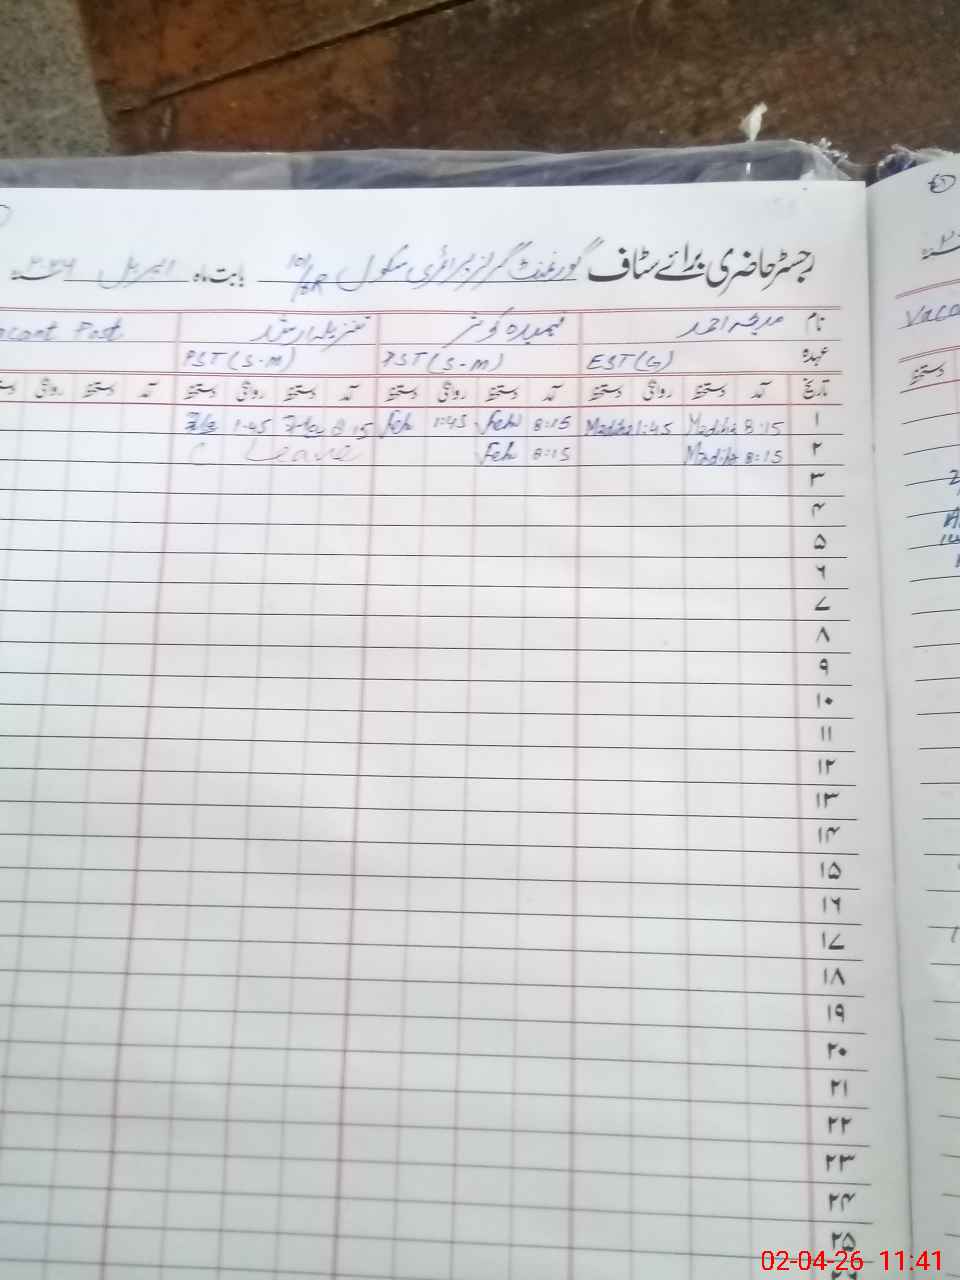 رجسٹر حاضری برائے سٹاف گورنمنٹ گرلز پرائمری سکول 101/6R بابت ماہ اپریل
نام مدیحہ احمد فہمیدہ کوثر تنزیلہ ارشد Vacant Post
عہدہ EST (G) PST (S-M) PST (S-M)
تاریخ آمد دستخط روانگی دستخط آمد دستخط روانگی دستخط آمد دستخط روانگی دستخط آمد دستخط روانگی
۱ 8:15 Madiha 1:45 Madiha 8:15 Feh 1:45 Feh 8:15 1:45
۲ 8:15 Madiha 8:15 Feh Leave
۳
۴
۵
۶
۷
۸
۹
۱۰
۱۱
۱۲
۱۳
۱۴
۱۵
۱۶
۱۷
۱۸
۱۹
۲۰
۲۱
۲۲
۲۳
۲۴
۲۵
02-04-26 11:41